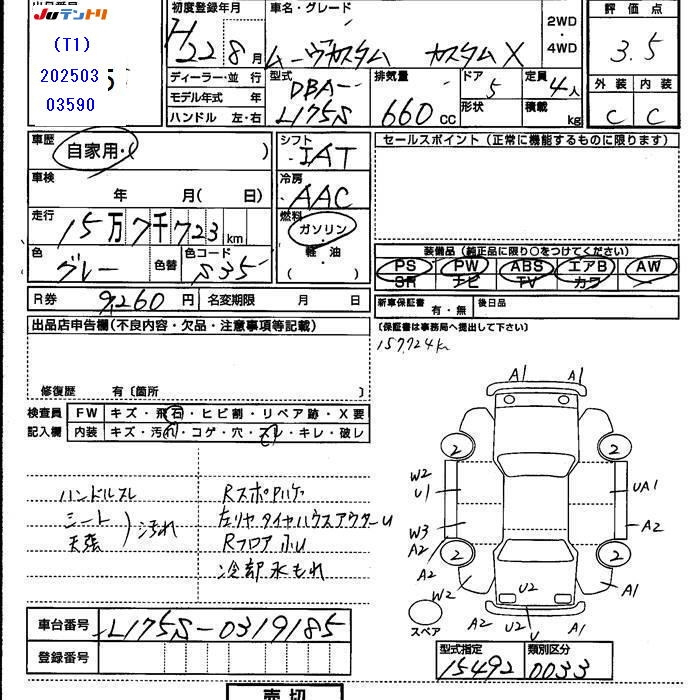 出品番号
Juテントリ
(T1)
202503
03590
初度登録年月
H22 8月
車名・グレード
ムーヴカスタム カスタムX
2WD
・
4WD
評価点
3.5
外装 内装
C C
ディーラー・並行
モデル年式 年
ハンドル 左・右
型式
DBA-
L175S
排気量
660cc
ドア
5
形状
定員
4人
積載
kg
車歴
自家用・( )
車検
年 月( 日)
走行
15万7千723km
色
グレー
色替
色コード
S35
シフト
IAT
冷房
AAC
燃料
ガソリン
・
軽・油
( )
セールスポイント(正常に機能するものに限ります)
装備品(純正品に限り○をつけてください)
PS PW ABS エアB AW
SR ナビ TV カワ
R券 9,260円 名変期限 月 日
新車保証書 有・無 後日品
(保証書は事務局へ提出して下さい)
157,724km
出品店申告欄(不良内容・欠品・注意事項等記載)
修復歴 有〔箇所 〕
検査員
記入欄
FW キズ・飛石・ヒビ割・リペア跡・X要
内装 キズ・汚れ・コゲ・穴・スレ・キレ・破レ
ハンドルスレ
シート
天張
汚れ
RスポAハゲ
左リヤタイヤハウスアウターU
RフロアふU
冷却水もれ
A1 A1
2 2
W2
U1
UA1
W3
A2
A2
2 2
A2
W2
U2
A1
スペア
A2 U2 U A1
車台番号 L175S-0319185
登録番号
型式指定 類別区分
15492 0033
売切